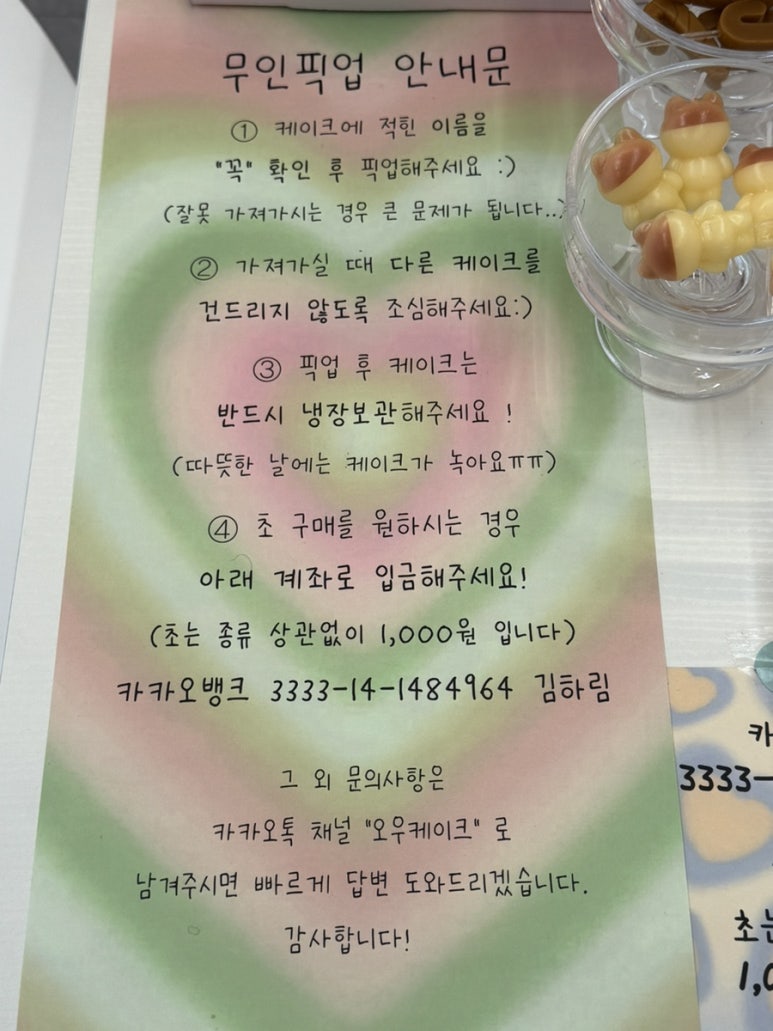 무인픽업 안내문
① 케이크에 적힌 이름을
"꼭" 확인 후 픽업해주세요 :)
(잘못 가져가시는 경우 큰 문제가 됩니다..)
② 가져가실 때 다른 케이크를
건드리지 않도록 조심해주세요:)
③ 픽업 후 케이크는
반드시 냉장보관해주세요 !
(따뜻한 날에는 케이크가 녹아요ㅠㅠ)
④ 초 구매를 원하시는 경우
아래 계좌로 입금해주세요!
(초는 종류 상관없이 1,000원 입니다)
카카오뱅크 3333-14-1484964 김하림
그 외 문의사항은
카카오톡 채널 "오우케이크" 로
남겨주시면 빠르게 답변 도와드리겠습니다.
감사합니다!
카
3333-
초는
1,0